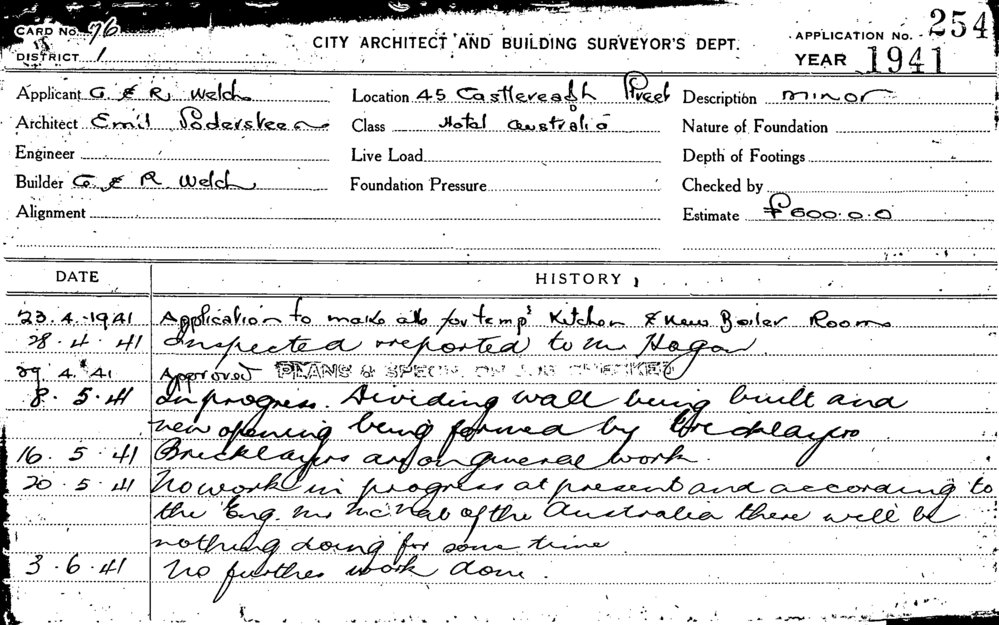 CARD No. 76
CITY ARCHITECT AND BUILDING SURVEYOR'S DEPT.
APPLICATION No. 254
DISTRICT 1
YEAR 1941
Applicant G & R Welch
Location 45 Castlereagh Street
Description minor
Architect Emil Sodersteen
Class Hotel Australia
Nature of Foundation
Engineer
Live Load
Depth of Footings
Builder G & R Welch
Foundation Pressure
Checked by
Alignment
Estimate £600.0.0
DATE HISTORY
23.4.1941 Application to make alts for temp' Kitchen & New Boiler Room
28.4.41 Inspected & reported to Mr Hogan
29.4.41 Approved PLANS & SPECN. ON JOB CHECKED
8.5.41 In progress. Dividing wall being built and
new opening being formed by Bricklayers
16.5.41 Bricklayers are on general work.
20.5.41 No work in progress at present and according to
the Eng. Mr McNab of the Australia there will be
nothing doing for some time
3.6.41 No further work done.